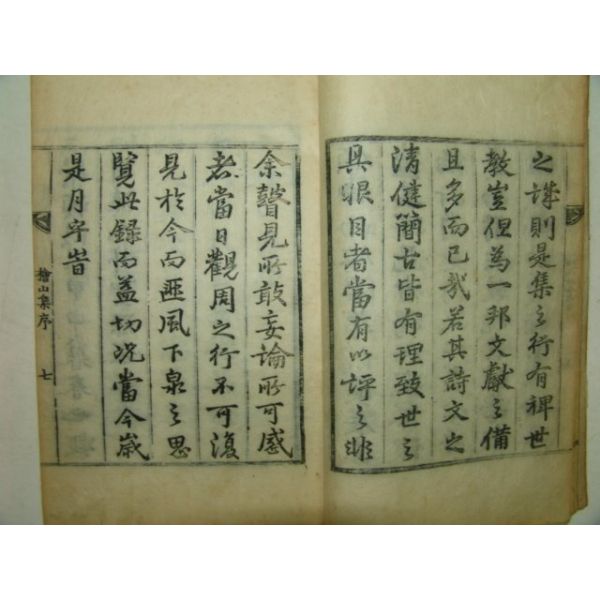 之謀則是集之行有裨世
教豈但為一邦文獻之備
且多而已哉若其詩文之
清健簡古皆有理致世之
具眼目者當有以評之非
余瞽見所敢妄論所可感
者當日觀周之行不可復
見於今而匪風下泉之思
覽此錄而益切況當今歲
是月乎昔
檜山集序 七